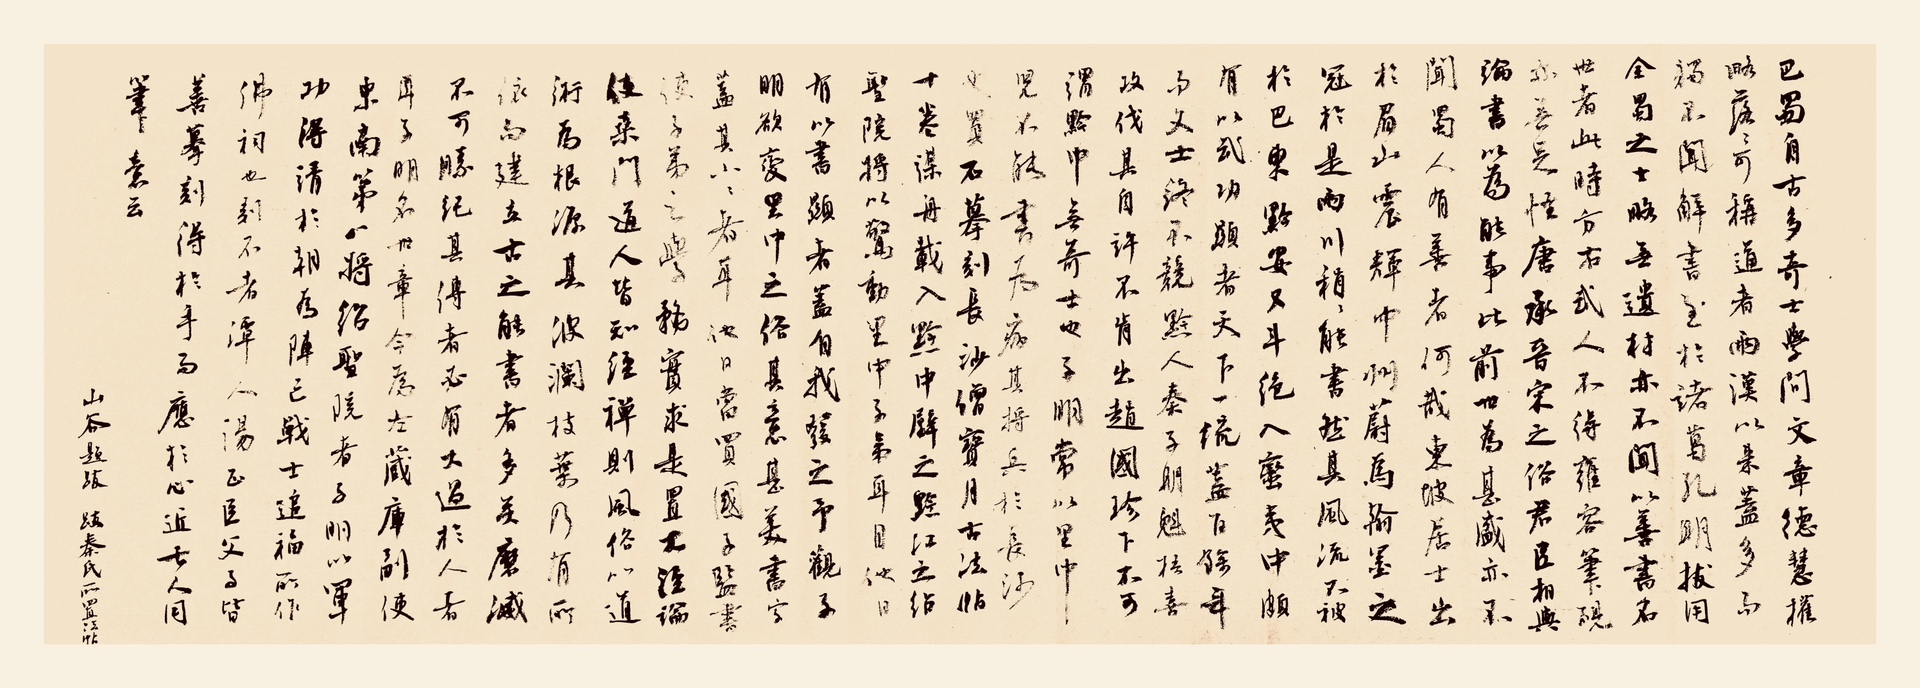 巴蜀自古多奇士學問文章德慧權
略落落可稱道者兩漢以來蓋多而
獨不聞解書至於諸葛孔明拔用
全蜀之士略無遺材亦不聞以善書名
世者此時方右武人不得雍容筆硯
亦無足怪唐承晉宋之俗君臣相與
論書以為能事比前世為甚盛亦不
聞蜀人有善者何哉東坡居士出
於眉山震輝中州蔚為翰墨之
冠於是兩川稍稍能書然其風流不被
於巴東黔安又斗絕入蠻夷中頗
有以武功顯者天下一統蓋百餘年
而文士終不競黔人秦子明魁梧喜
攻伐其自許不肯出趙國珍下不可
謂黔中無奇士也子明常以里中
兒不能書為病其將兵於長沙
也買石摹刻長沙僧寶月古法帖
十卷謀舟載入黔中壁之黔江之紹
聖院將以驚動里中子弟耳目他日
有以書顯者蓋自我發之予觀子
明欲變里中之俗其意甚美書字
蓋其小小者耳他日當買國子監書
使子弟之學務實求是置大經論
使桑門道人皆知經禪則風俗以道
術為根源其波瀾枝葉乃有所
依而建立古之能書者多矣磨滅
不可勝紀其傳者必有大過於人者
耳子明名世章今為左藏庫副使
東南第八將紹聖院者子明以軍
功得請於朝為陣亡戰士追福所作
佛祠也刻石者潭人湯正臣父子皆
善摹刻得於手而應於心近古人用
筆意云
山谷題跋 跋秦氏所置法帖